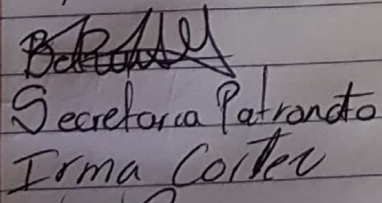 Secretaria Patronato
Irma Cortez